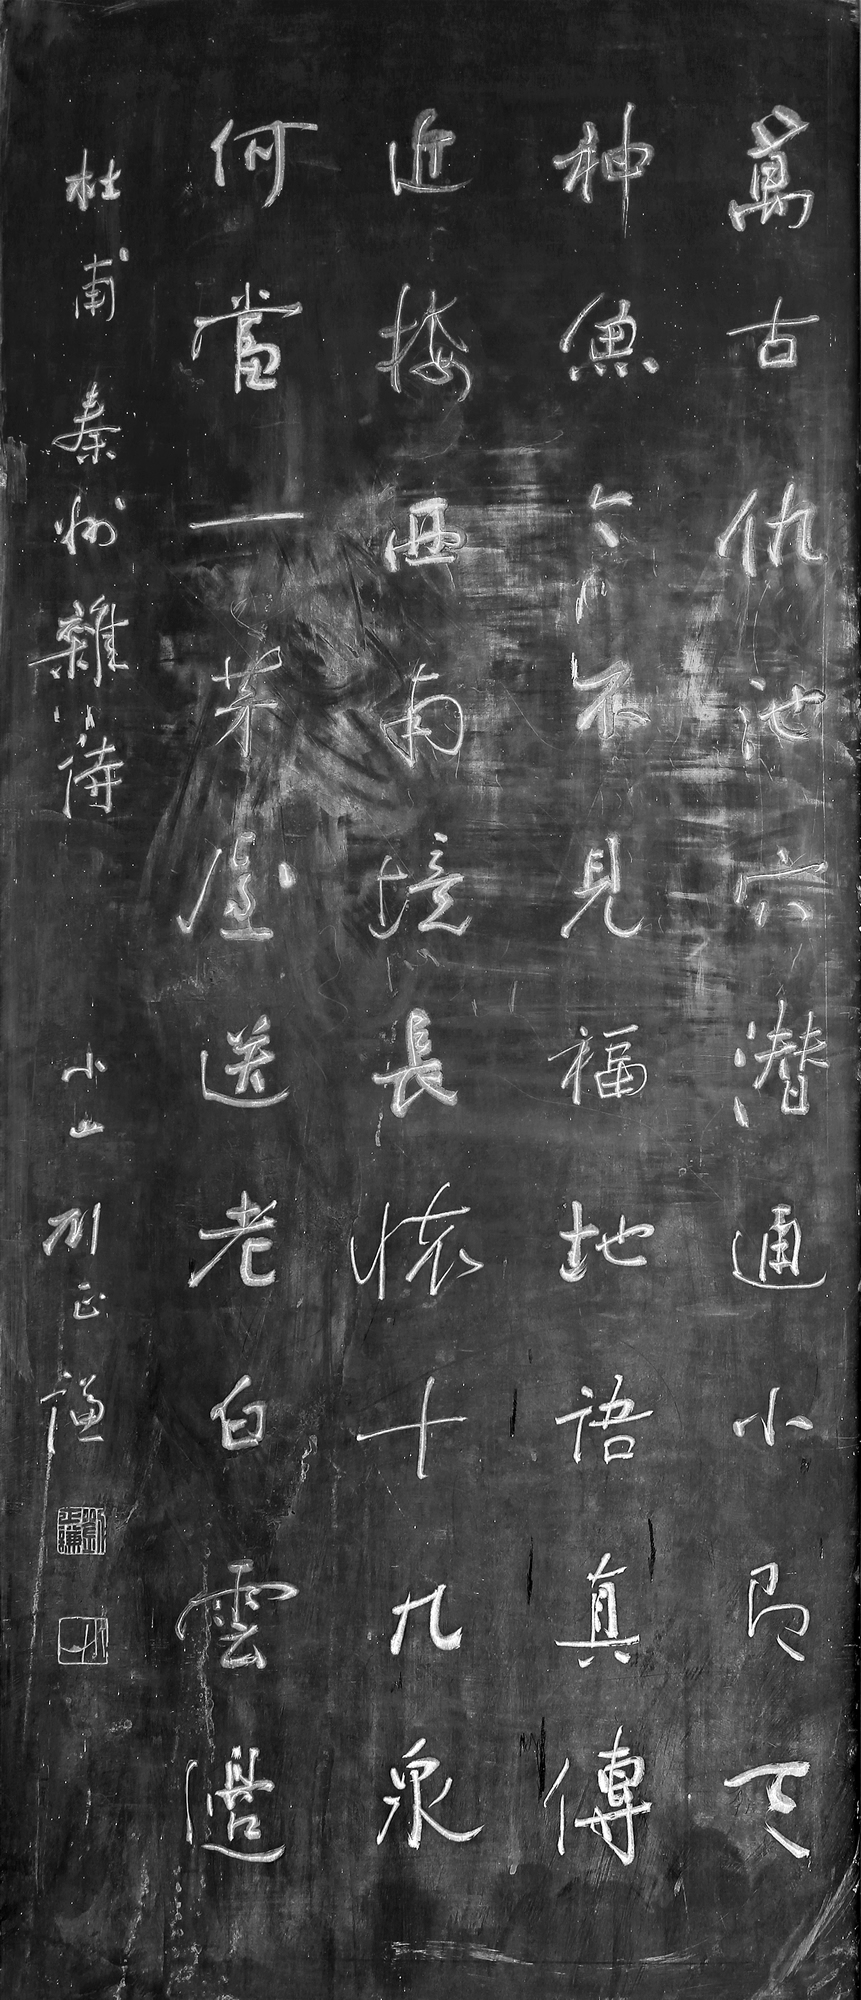 萬古仇池穴潛通小有天
神魚人不見福地語真傳
近接西南境長懷十九泉
何當一茅屋送老白雲邊
杜甫秦州雜詩 小山劉正謙